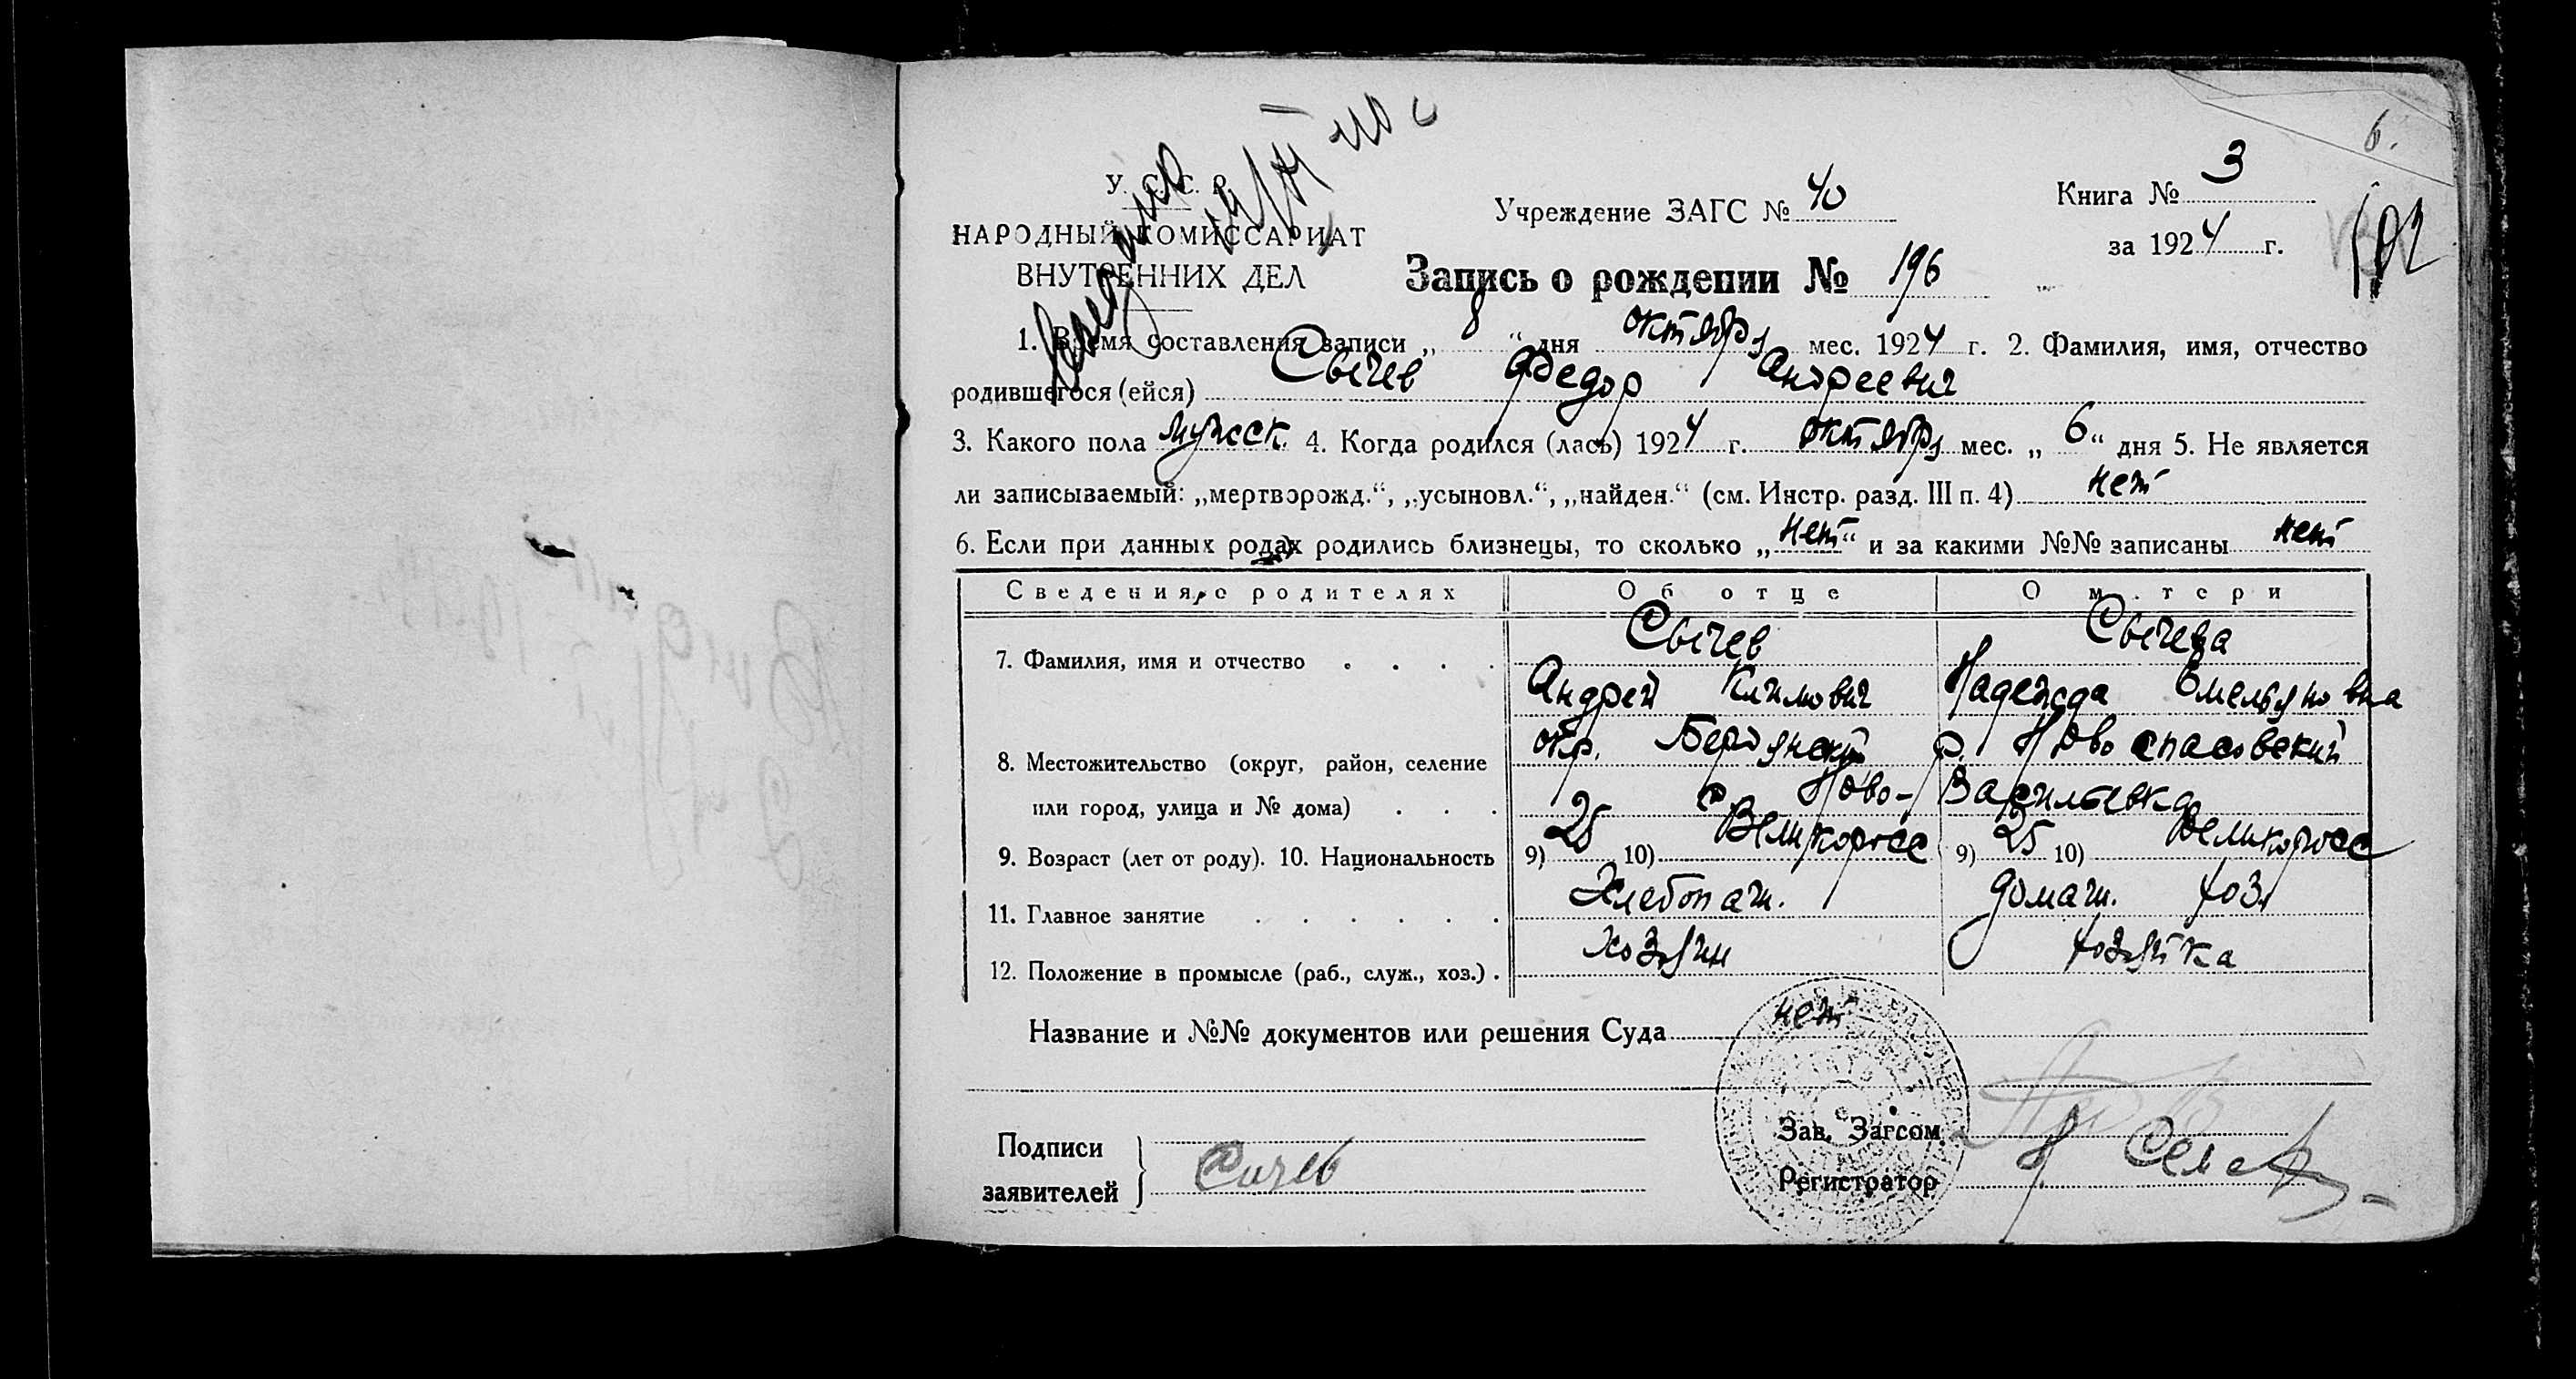 6.
У. С. С. Р.
НАРОДНЫЙ КОМИССАРИАТ
ВНУТРЕННИХ ДЕЛ
Учреждение ЗАГС № 40
Книга № 3
за 1924 г.
Запись о рождении № 196
1. Время составления записи „ 8 “ дня октября мес. 1924 г. 2. Фамилия, имя, отчество
родившегося (ейся) Сычев Федор Андреевич
3. Какого пола мужск. 4. Когда родился (лась) 1924 г. октября мес. „ 6 “ дня 5. Не является
ли записываемый: „мертворожд.“, „усыновл.“, „найден.“ (см. Инстр. разд. III п. 4) нет
6. Если при данных родах родились близнецы, то сколько „ нет “ и за какими №№ записаны нет
Сведения о родителях Об отце О м.тери
7. Фамилия, имя и отчество . . . . Сычев Сычева
Андрей Климович Надежда Емельяновна
8. Местожительство (округ, район, селение окр. Бердянский р. Новоспасовский
или город, улица и № дома) . . . с. Ново-Васильевка
9. Возраст (лет от роду). 10. Национальность 9) 25 10) Великоросс 9) 25 10) Великоросс
11. Главное занятие . . . . . . Хлебопаш. домаш. хоз.
12. Положение в промысле (раб., служ., хоз.) . хозяин хозяйка
Название и №№ документов или решения Суда нет
Подписи
заявителей
Сичев
Зав. Загсом
Регистратор